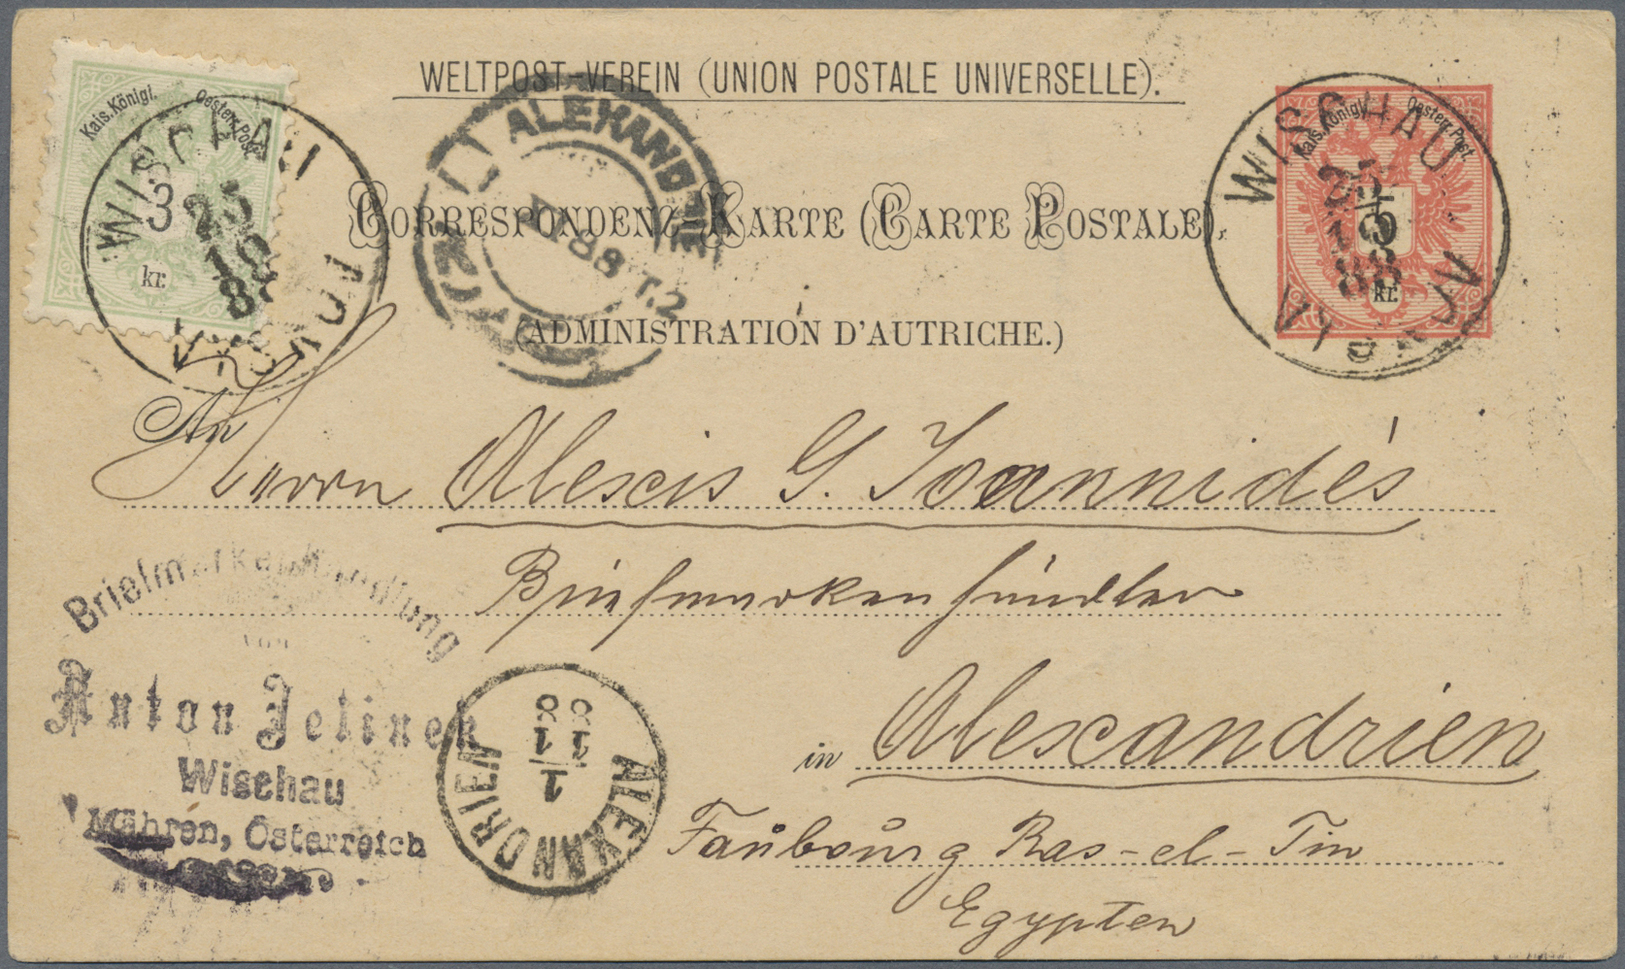 WELTPOST-VEREIN (UNION POSTALE UNIVERSELLE).
Kais. Königl. Oesterr. Post.
3
kr.
WISCHAU
25
10
88
VYŠKOV
ALEXANDRIE
88 T.2
Kais. Königl. Oesterr. Post.
5
kr.
WISCHAU
25
10
88
CORRESPONDENZ-KARTE (CARTE POSTALE).
(ADMINISTRATION D'AUTRICHE.)
An
Herrn Alexis G. Ioannidés
Briefmarkenhändler
in Alexandrien
Faubourg Ras-el-Tin
Egypten
Briefmarkenhandlung
von
Anton Jelinek
Wischau
Mähren, Österreich
ALEXANDRIEN
1
11
88